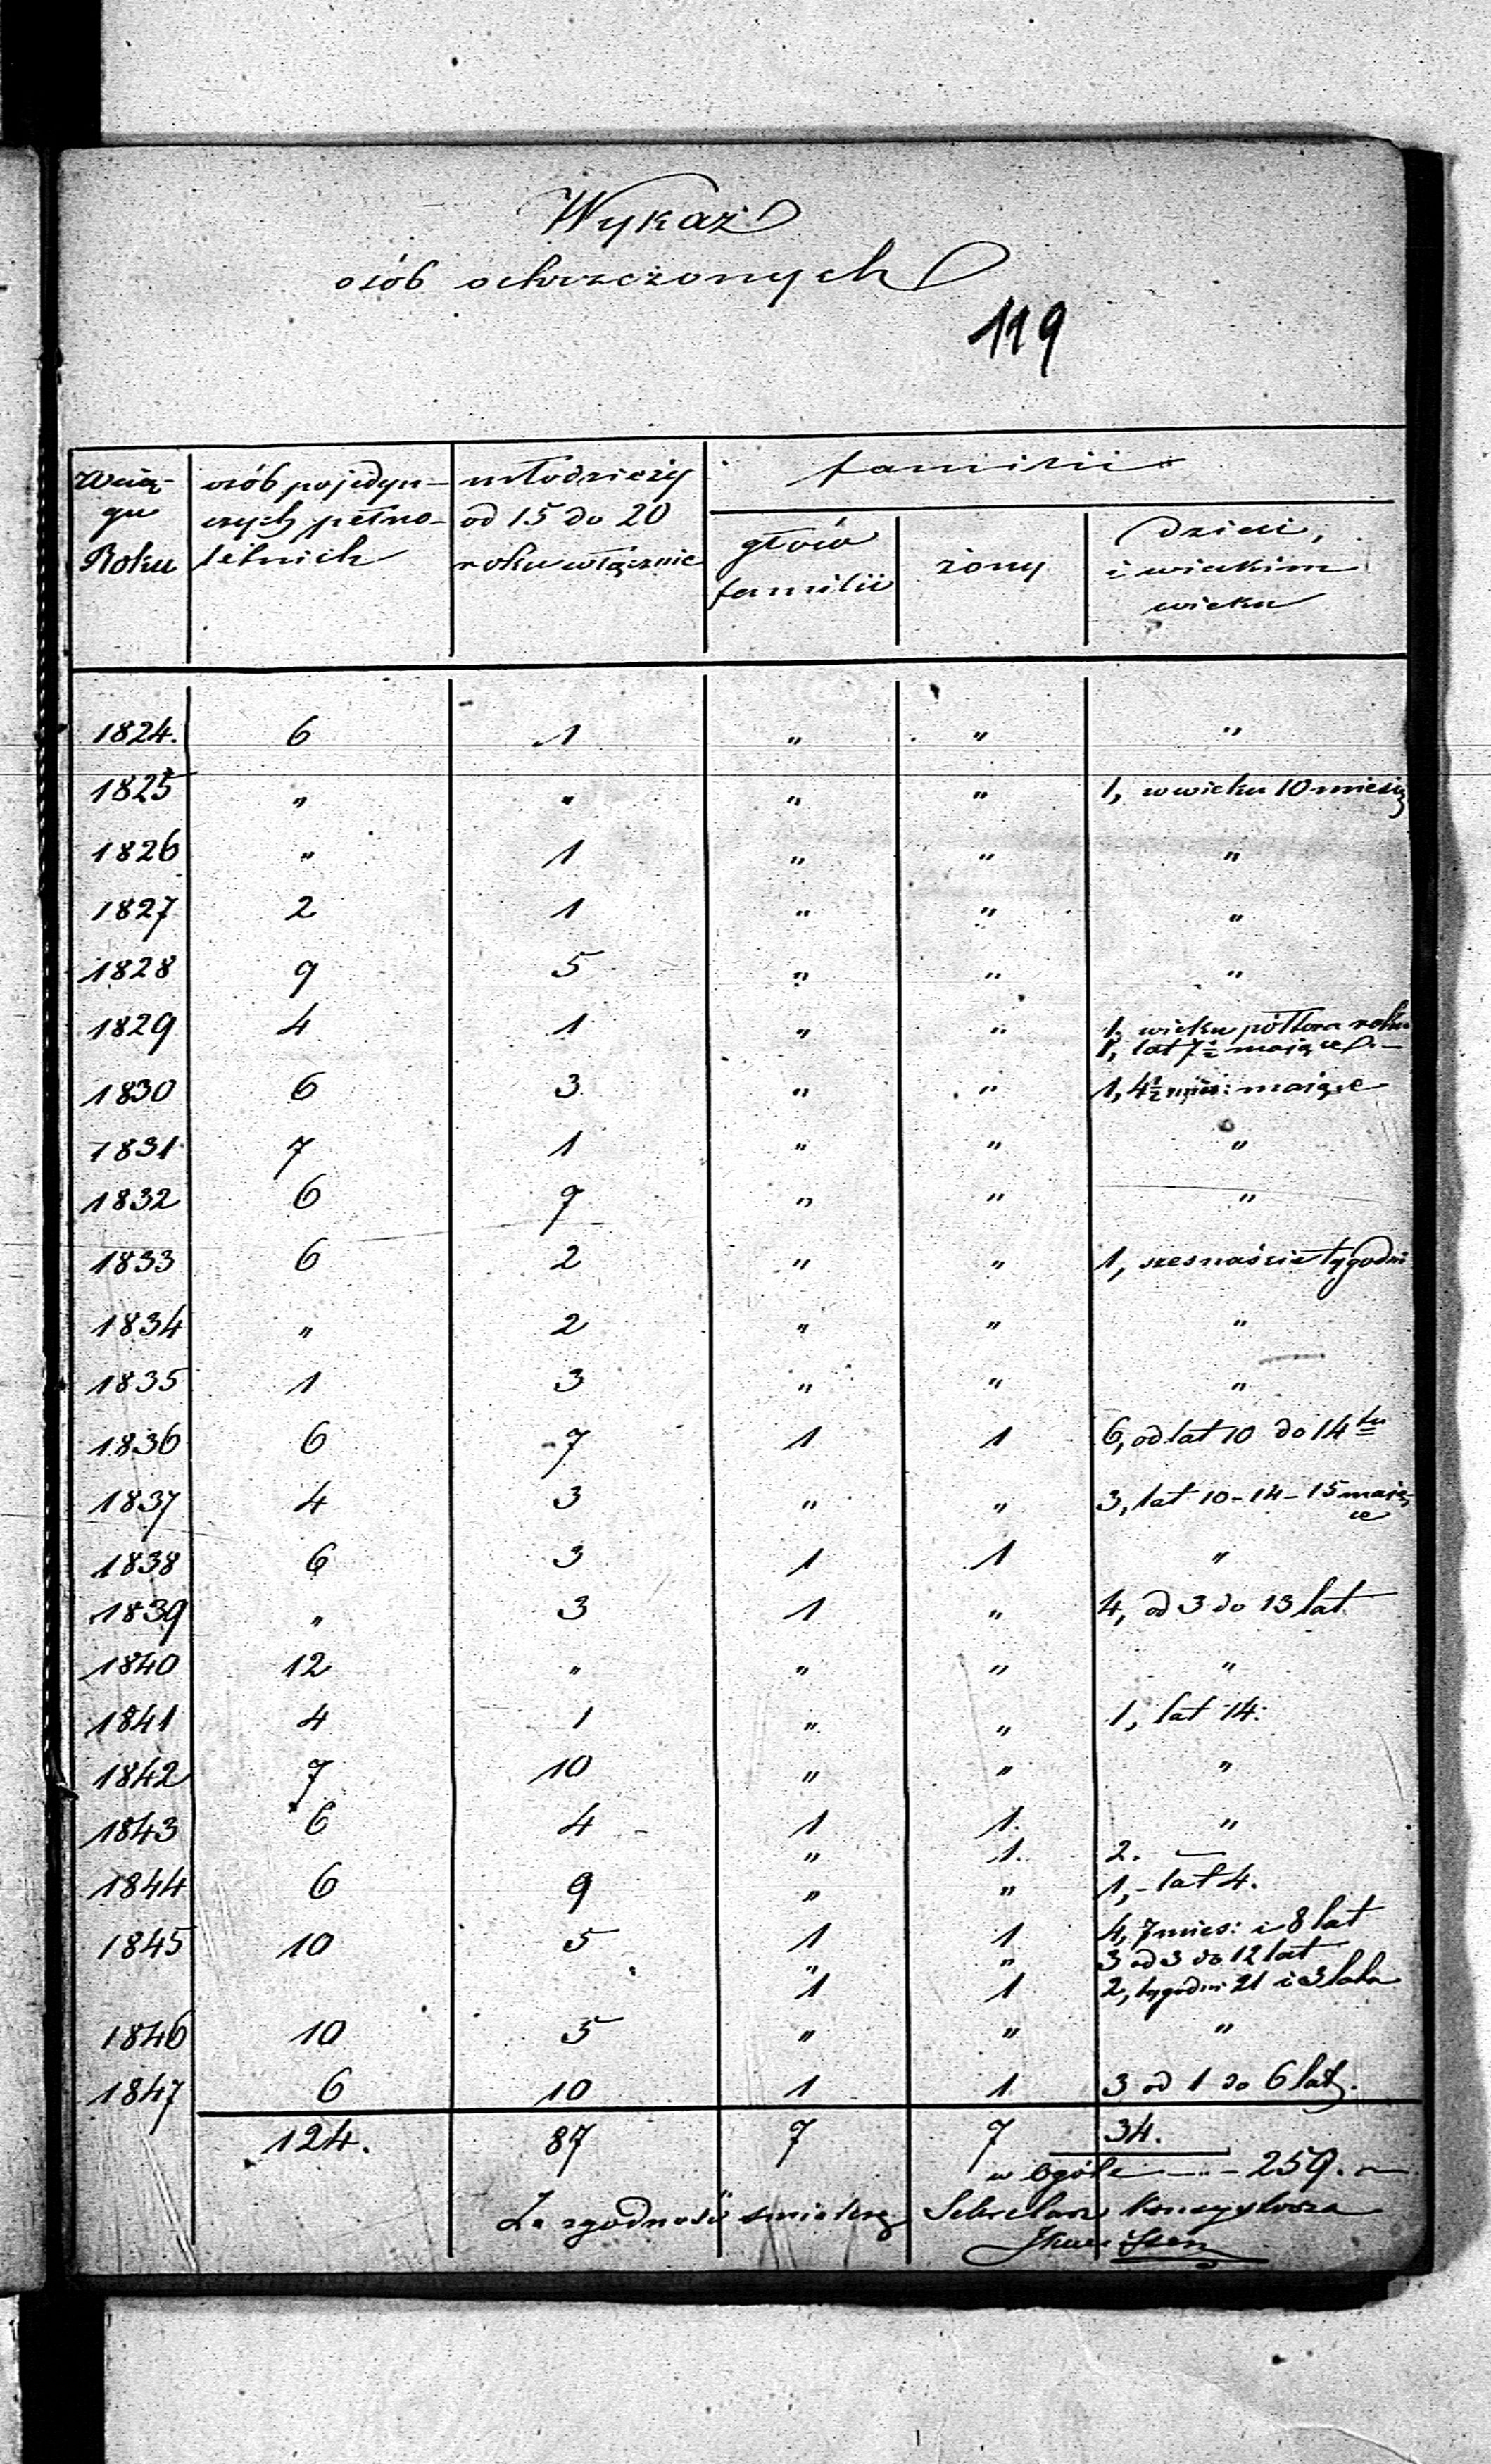 Wykaz
osób ochrzczonych
119
W cią-
gu
Roku
osób pojedyn-
czych pełno-
letnich
młodzieży
od 15 do 20
roku włącznie
familii
głów
familii
żony
dzieci,
i w iakim
wieku
1824. 6 1 " " "
1825 " " " " 1, w wieku 10 miesię
1826 " 1 " " "
1827 2 1 " " "
1828 9 5 " " "
1829 4 1 " " 1, wieku półtora roku
1, lat 7½ maiące
1830 6 3 " " 1, 4½ mies: maiące
1831 7 1 " " "
1832 6 7 " " "
1833 6 2 " " 1, szesnaście tygodni
1834 " 2 " " "
1835 1 3 " " "
1836 6 7 1 1 6, od lat 10 do 14tu
1837 4 3 " " 3, lat 10-14-15 maią-
ce
1838 6 3 1 1 "
1839 " 3 1 " 4, od 3 do 13 lat
1840 12 " " " "
1841 4 1 " " 1, lat 14.
1842 7 10 " " "
1843 6 4 1 1. "
" 1. 2. —
1844 6 9 " " 1, - lat 4.
1845 10 5 1 1 4, 7 mies: i 8 lat
" " 3 od 3 do 12 lat
1 1 2, tygodni 21 i 3 lata
1846 10 5 " " "
1847 6 10 1 1 3 od 1 do 6 lat.
124. 87 7 7 34.
w ogóle — 259.
Za zgodność Sekretarz Konsystorza